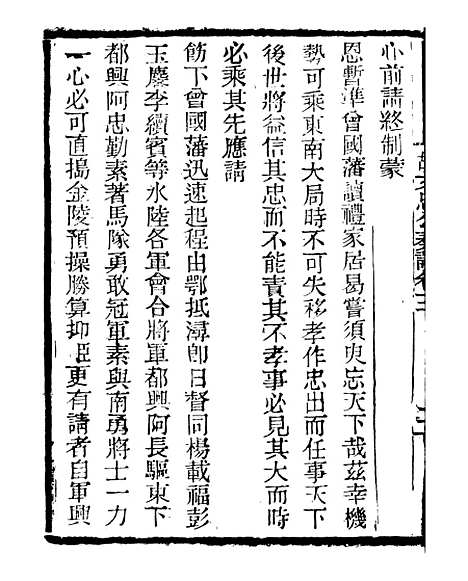 心前請終制蒙
恩暫準曾國藩讀禮家居曷嘗須臾忘天下哉茲幸機
勢可乘東南大局時不可失移孝作忠出而任事天下
後世將益信其忠而不能責其不孝事必見其大而時
必乘其先應請
飭下曾國藩迅速起程由鄂抵潯卽日督同楊載福彭
玉麐李續賓等水陸各軍會合將軍都興阿長驅東下
都興阿忠勤素著馬隊勇敢冠軍素與南勇將士一力
一心必可直搗金陵預操勝算抑臣更有請者自軍興